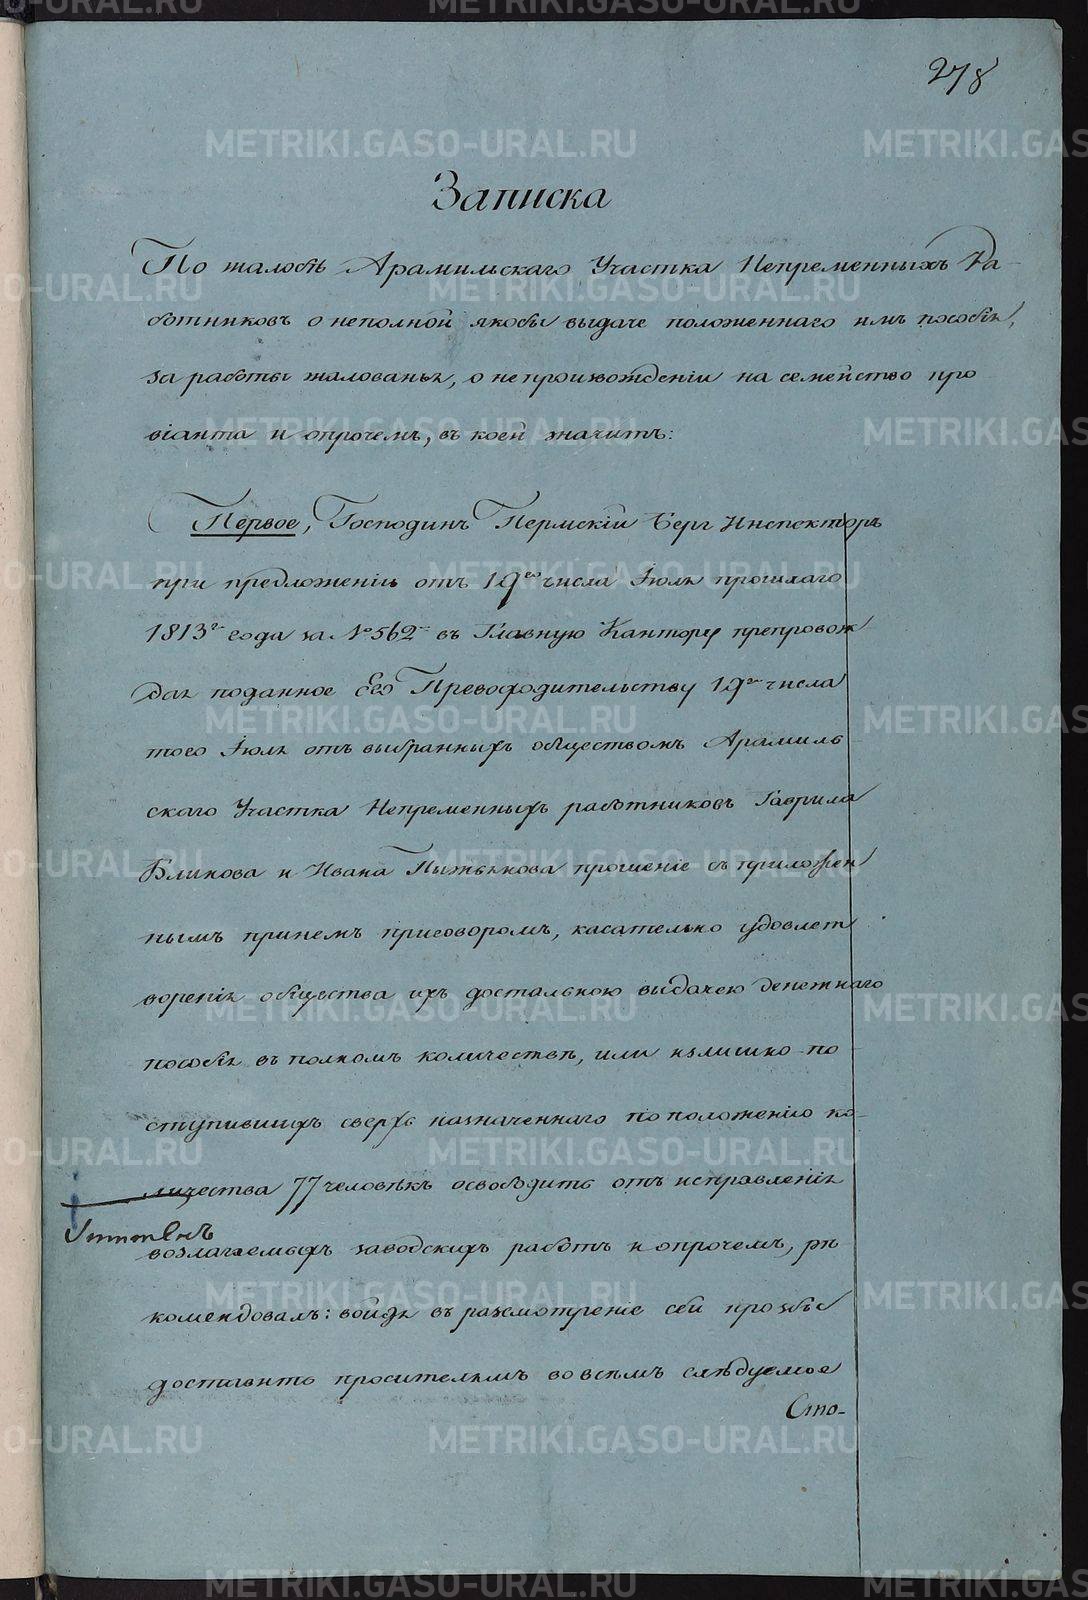 278
Записка
По жалобѣ Арамильскаго Участка Непременныхъ Ра-
ботниковъ о неполной якобы выдаче положеннаго имъ пособія,
за работы жалованья, о непроизвожденіи на семейство про
віанта и опрочемъ, въ коей значитъ:
Первое, Господинъ Пермскій Бергъ Инспекторъ
при предложеніи отъ 19го числа Іюля прошлаго
1813г года за №562м въ Главную Кантору препровож
дая поданное Его Превосходительству 19го числа
того Іюля отъ выбранныхъ обществомъ Арамиль
скаго Участка Непременныхъ работниковъ Гаврила
Блинова и Ивана Пыжьянова прошеніе съ приложен
нымъ принемъ приговоромъ, касательно удовлет
воренія общества ихъ достальною выдачею денежнаго
пособія въ полномъ количествѣ, или излишно по
ступившихъ сверхъ назначеннаго по положенію ко-
личества 77 человѣкъ освободить отъ исправленія
возлагаемыхъ заводскихъ работъ и опрочемъ, рѣ
комендовалъ: войдя въ разсмотреніе сей прозьбы
доставить просителямъ во всемъ слѣдуемое
Сто-
METRIKI.GASO-URAL.RU